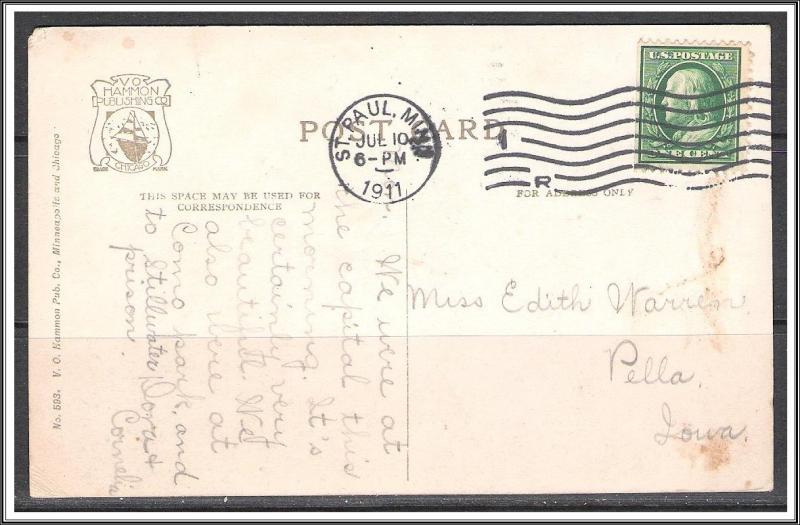 V.O.
HAMMON
PUBLISHING CO
CHICAGO
TRADE MARK
POST CARD
ST. PAUL, MINN.
JUL 10
6-PM
1911
1
R
U.S. POSTAGE
ONE CENT
THIS SPACE MAY BE USED FOR
CORRESPONDENCE
FOR ADDRESS ONLY
No. 593. V. O. Hammon Pub. Co., Minneapolis and Chicago
We were at
the capital this
morning. It's
certainly very
beautiful. We
also were at
Como park, and
to Stillwater
prison.
Dora &
Cornelia
Miss Edith Warren
Pella,
Iowa.